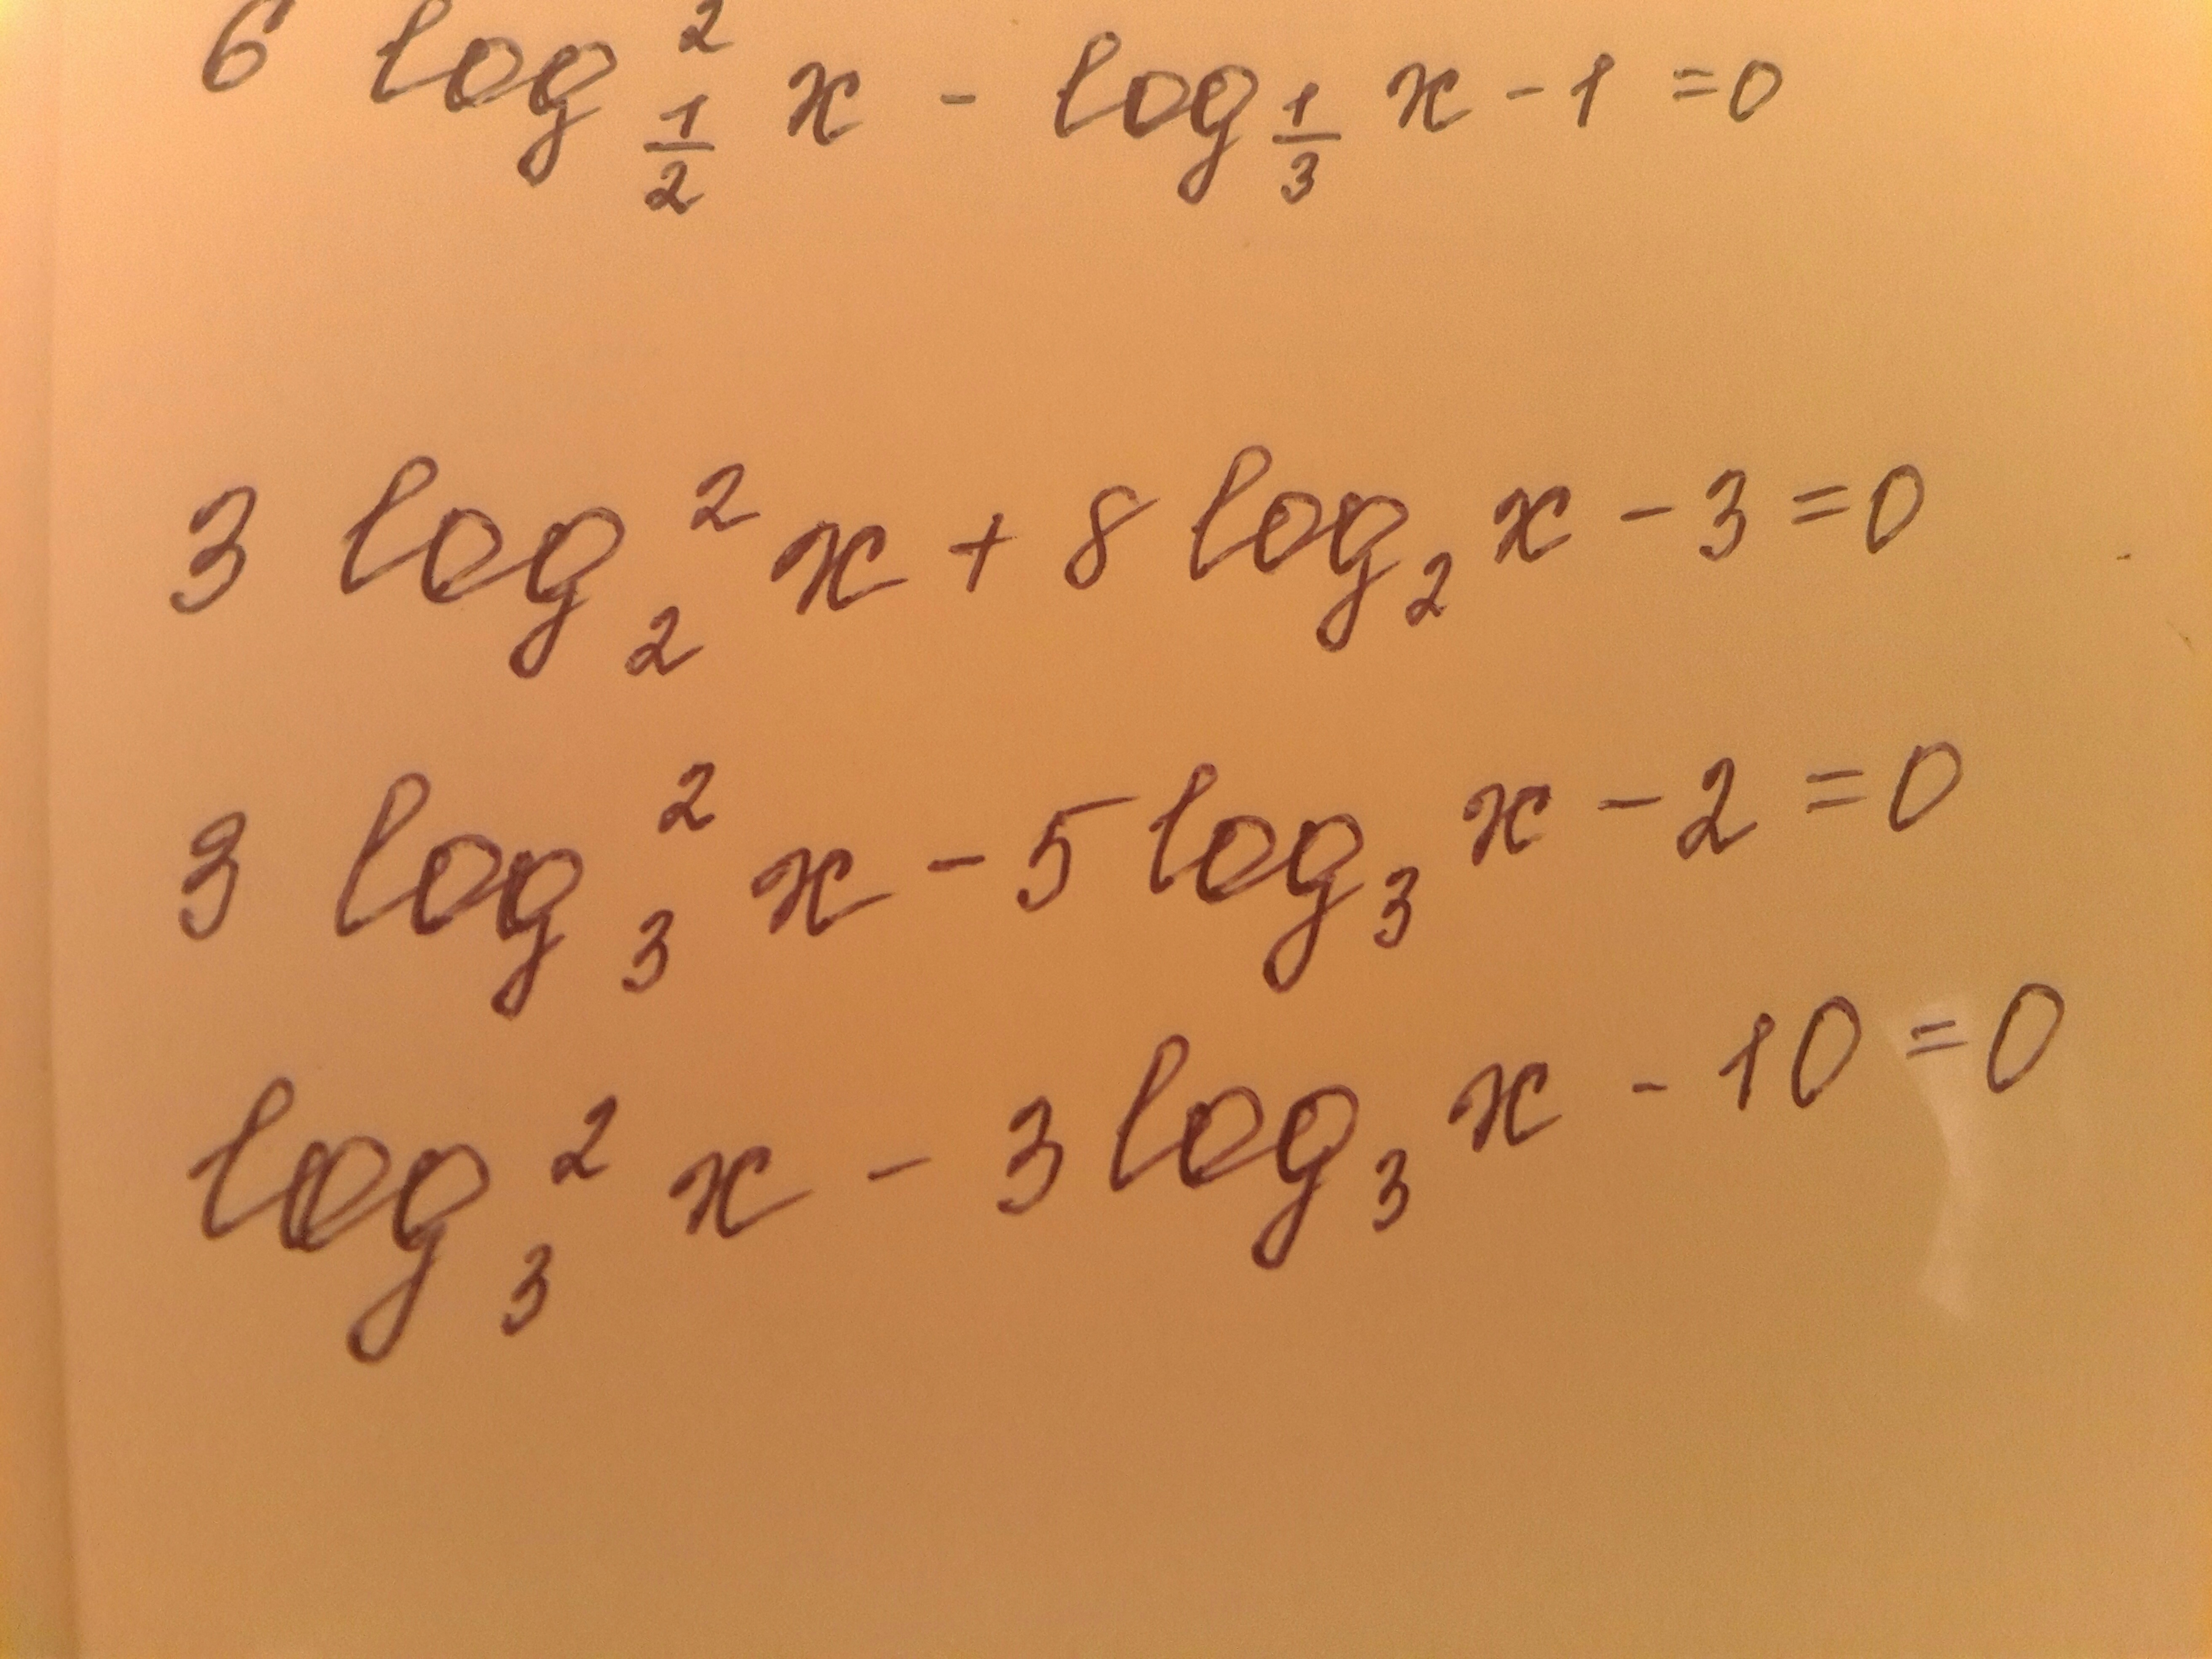 6 log²_{1/2} x - log_{1/3} x - 1 = 0
3 log²_2 x + 8 log_2 x - 3 = 0
3 log²_3 x - 5 log_3 x - 2 = 0
log²_3 x - 3 log_3 x - 10 = 0